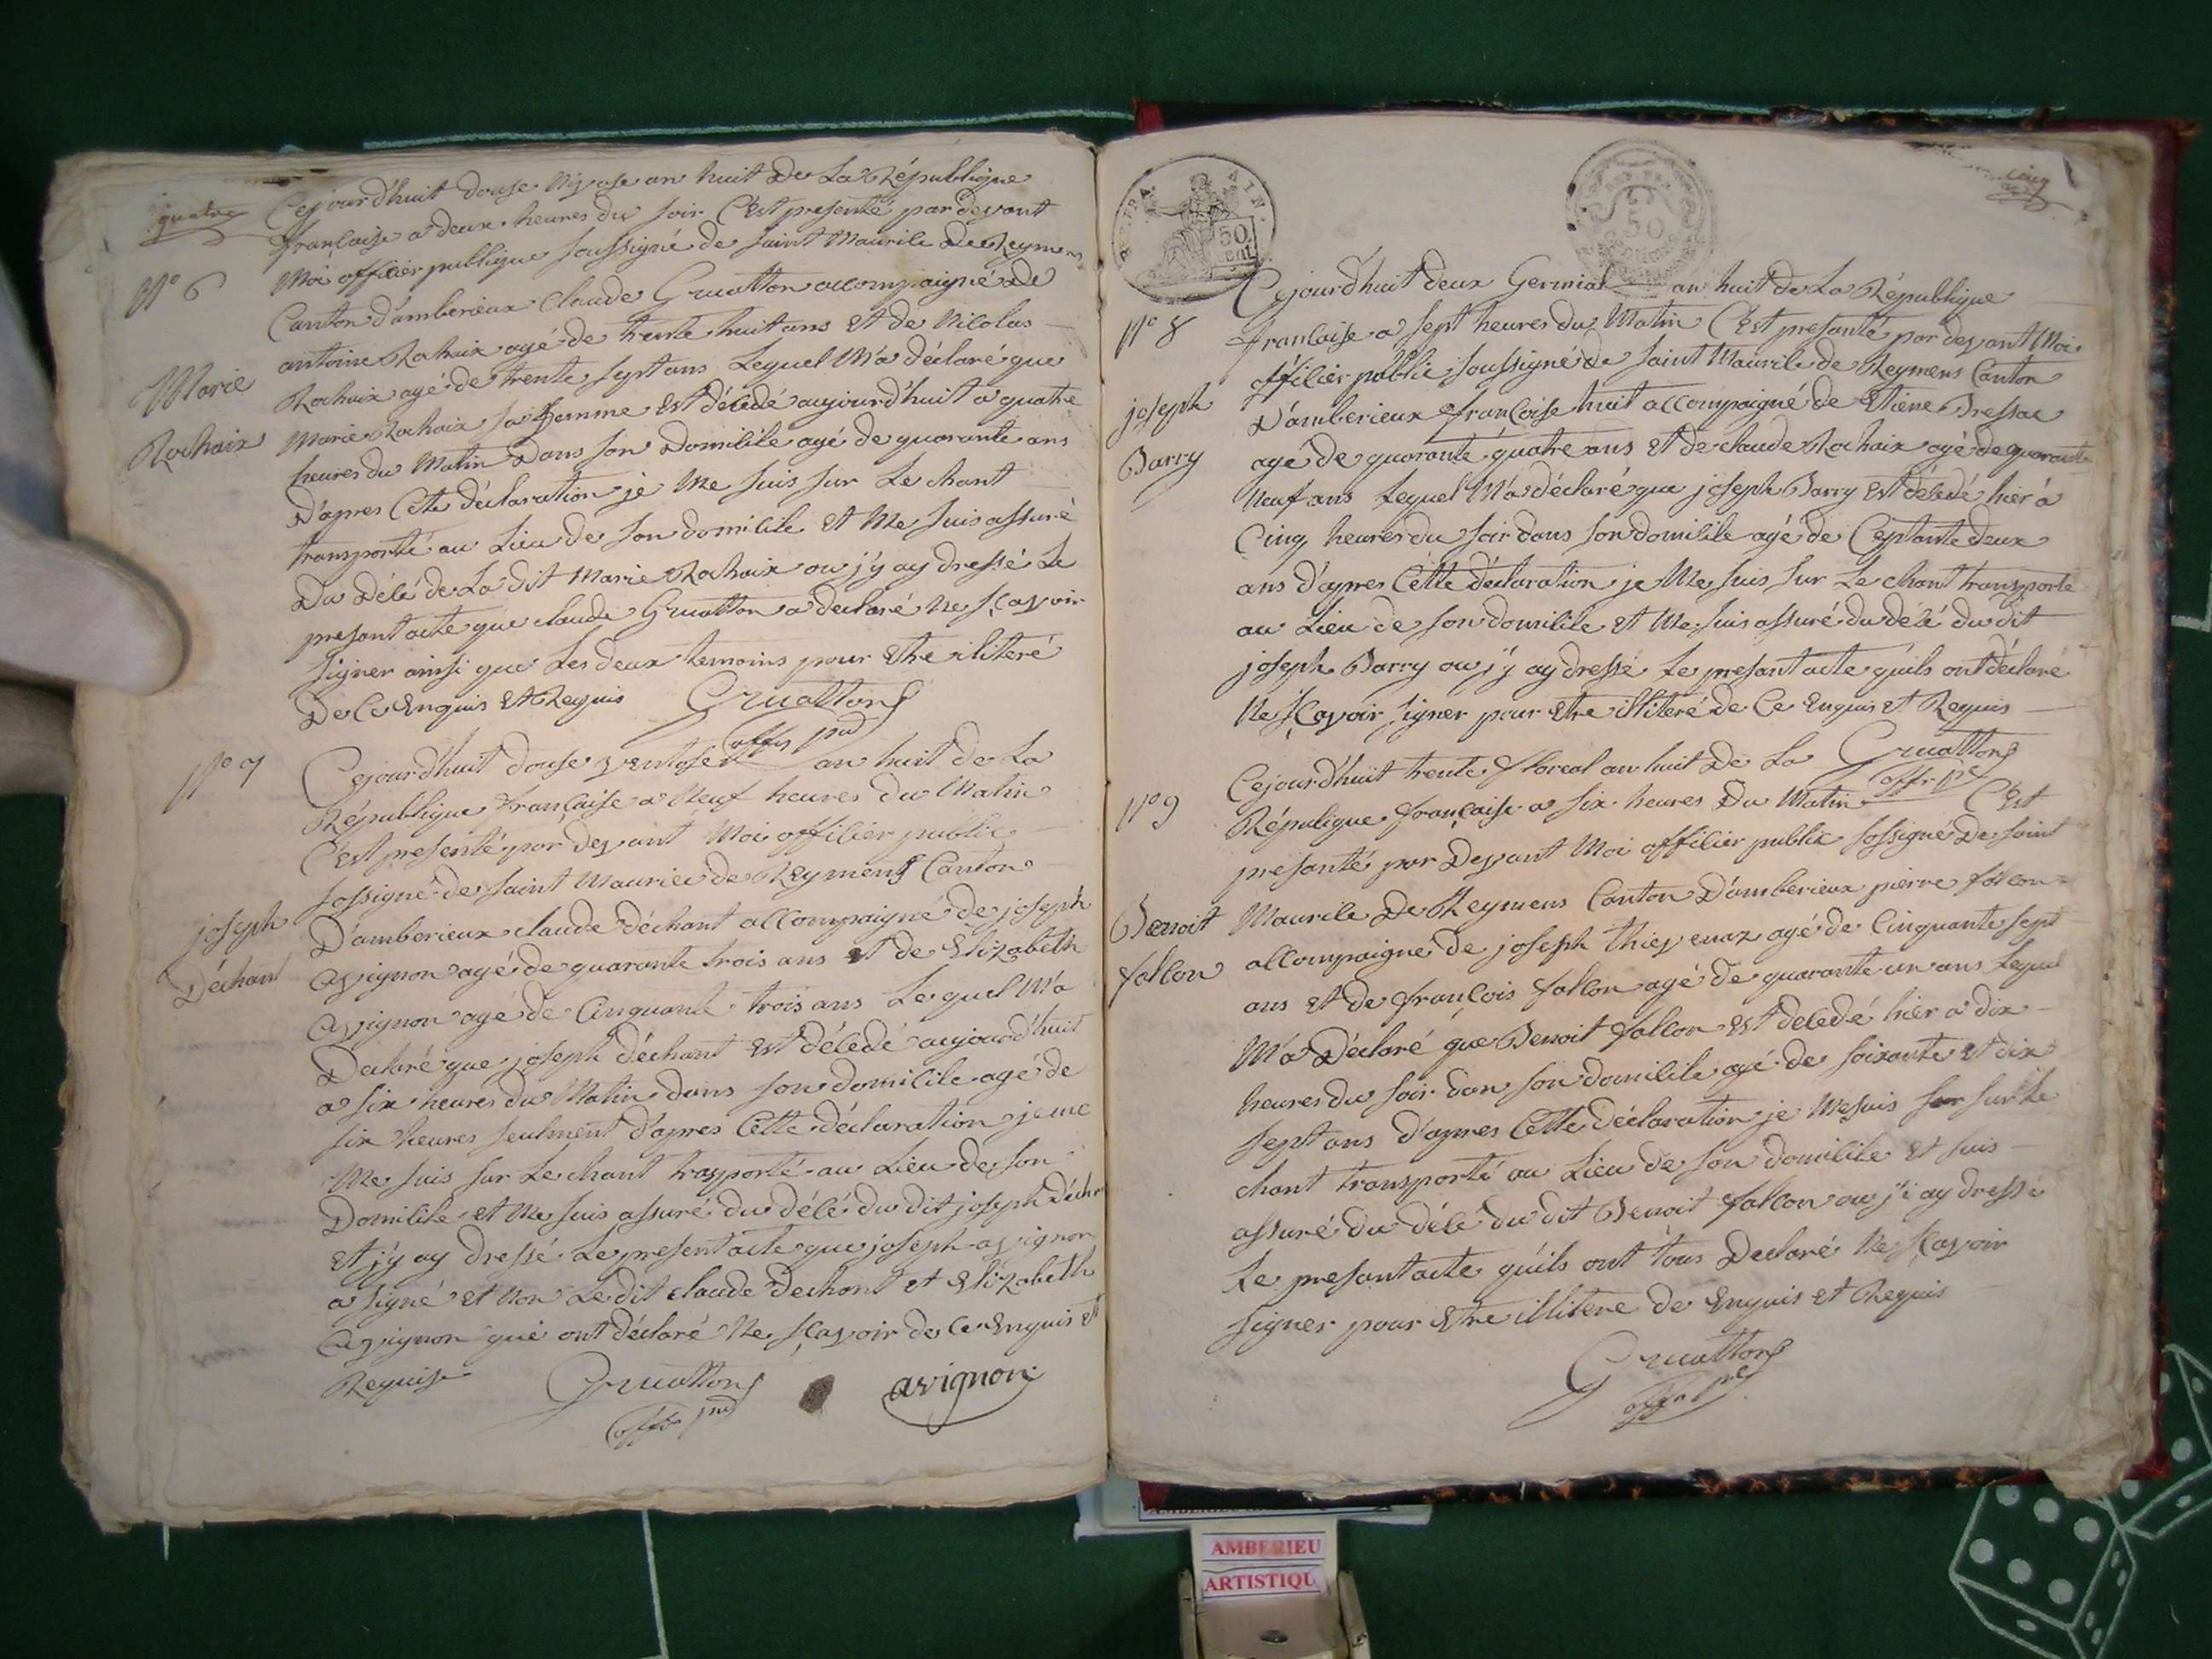 quatre
Cejourdhuit douse Nivose an huit De La République
française a deux heures du soir C'est presenté par devant
N° 6
Moi officier publique soussigné de saint Maurice De Reymens
Canton d'amberieux Claude Gruatton accompaigné De
antoine Rochaix agé de trente huit ans Et de Nicolas
Marie
Rochaix
Rochaix agé de trente sept ans Lequel M'a déclaré que
Marie Rochaix sa femme Est décédé aujourd'huit a quatre
heures du Matin Dans son Domicile agé de quarante ans
D'apres Cete déclaration je Me suis sur Le chant
transporté au Lieu de son domicile Et Me suis assuré
Du Décé de La dit Marie Rochaix ou j'y ay dressé Le
presant acte que claude Gruatton a declaré Ne sçavoir
signer ainsi que Les deux temoins pour Etre iliteré
De Ce Enquis Et Requis Gruatton
offis pu
N° 7
Cejourd'huit douse ventose an huit de La
République française a Neuf heures du Matin
C'est presenté par devant Moi officier public
sossigné de saint Maurice de Reymens Canton
joseph
Déchant
D'amberieux claude déchant accompaigné de joseph
avignon agé de quarante trois ans Et de Elizabeth
avignon agé de Cinquante trois ans Lequel M'a
Declaré que joseph déchant Est décedé aujourd'huit
a six heures du Matin dans son domicile agé de
six heures seulment d'apres Cette déclaration je me
Me suis sur Le chant trasporté au Lieu de son
Domicile Et Me suis assuré du décé du dit joseph déchant
Et j'y ay dressé Le present acte que joseph avignon
a signé Et Non Le dit claude Dechant Et Elizabeth
avignon qui ont déclaré Ne sçavoir de Ce Enquis Et
Requise Gruatton avignon
cinq
50
50
cent
AIN
Cejourd'huit deux Germial an huit de La République
N° 8
francaise a sept heures du Matin C'est presanté par devant Moi
officier public soussigné de saint Maurice de Reymens Canton
joseph
Barry
D'amberieux françoise huit accompaigné de Etiene Bressac
agé de quarante quatre ans Et de claude Rochaix agé de quarante
Neuf ans Lequel M'a déclaré que joseph Barry Est décedé hier a
Cinq heures du soir dans son domicile agé de Ceptante deux
ans d'apres Cette déclaration je Me suis sur Le chant transporte
au Lieu de son domicile Et Me suis assuré du décé du dit
joseph Barry ou j'y ay dressé Le presant acte quils ont déclaré
Ne sçavoir signer pour Etre illiteré de Ce Enquis Et Requis
Gruatton
N° 9
Cejourd'huit trente floreal an huit De La
Répulique française a six heures Du Matin C'Est
presanté par Devant Moi officier public sossigné De saint
Benoit
falcon
Maurice De Reymens Canton D'amberieux pierre falcon
accompaigne de joseph thievenaz agé de Cinquante sept
ans Et de françois falcon agé de quarante un ans Lequel
M'a Déclaré que Benoit falcon Est décedé hier a dix
heures du soir dan son domicile agé de soixante Et dix
sept ans d'apres Cette déclaration je Me suis sur Le
chant transporté au Lieu de son domicile Et suis
assuré du décé du dit Benoit falcon ou j'i ay dressé
Le presant acte quils ont tous Declaré Ne sçavoir
signer pour Etre illitere de Enquis Et Requis
Gruatton
AMBERIEU
ARTISTIQU